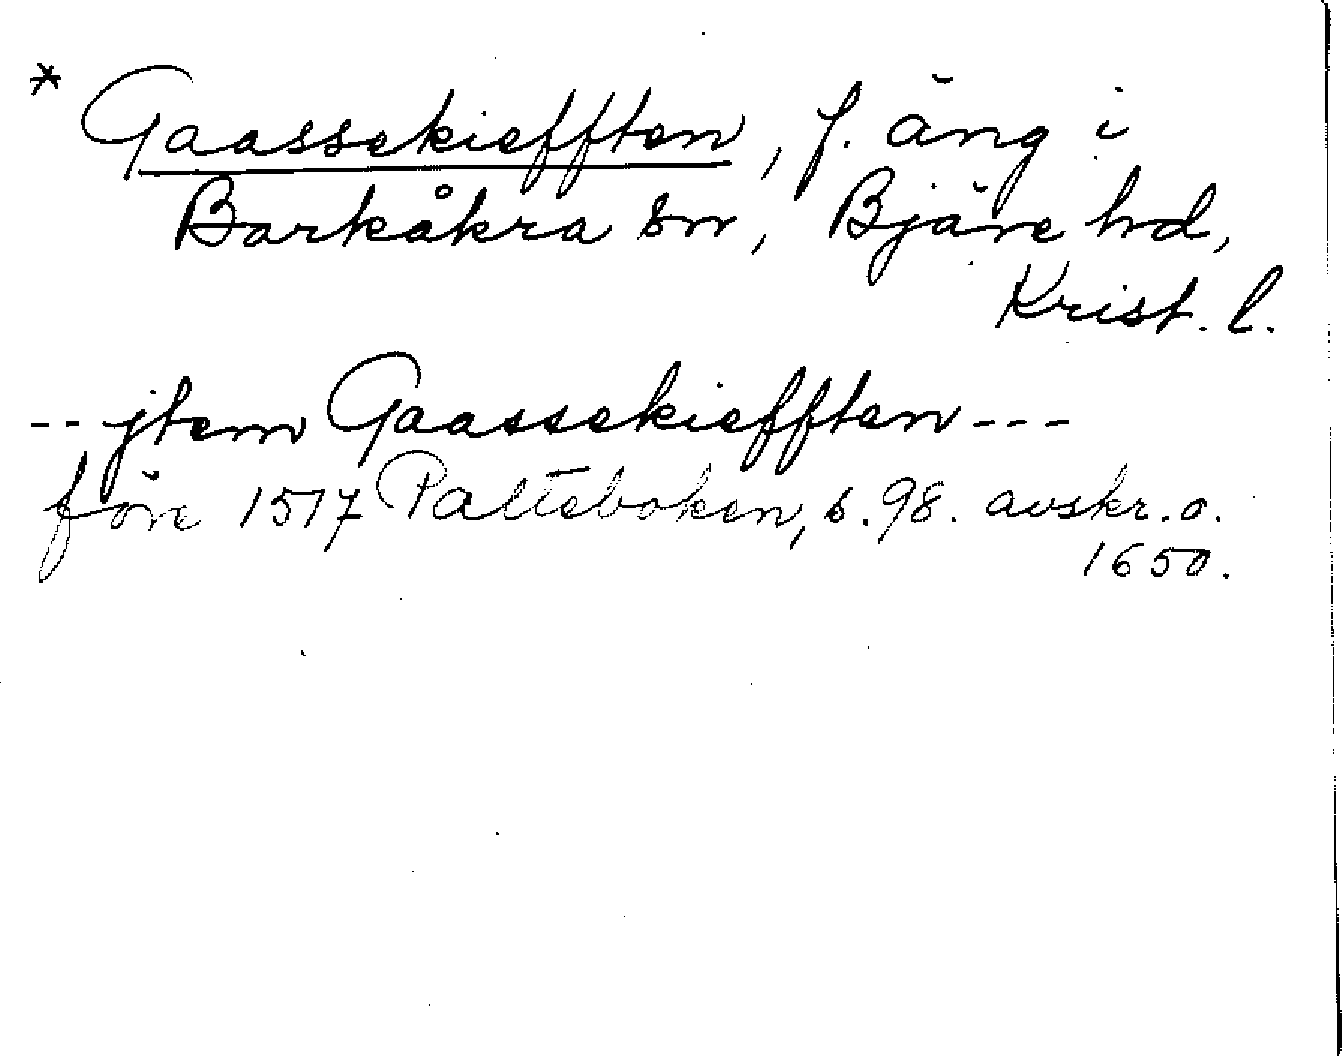 * Gaassekiefften, f. äng i
Barkåkra sn, Bjäre hd,
Krist. l.
-- jtem Gaassekiefften ---
före 1517 Palteboken, s. 98. avskr. o.
1650.